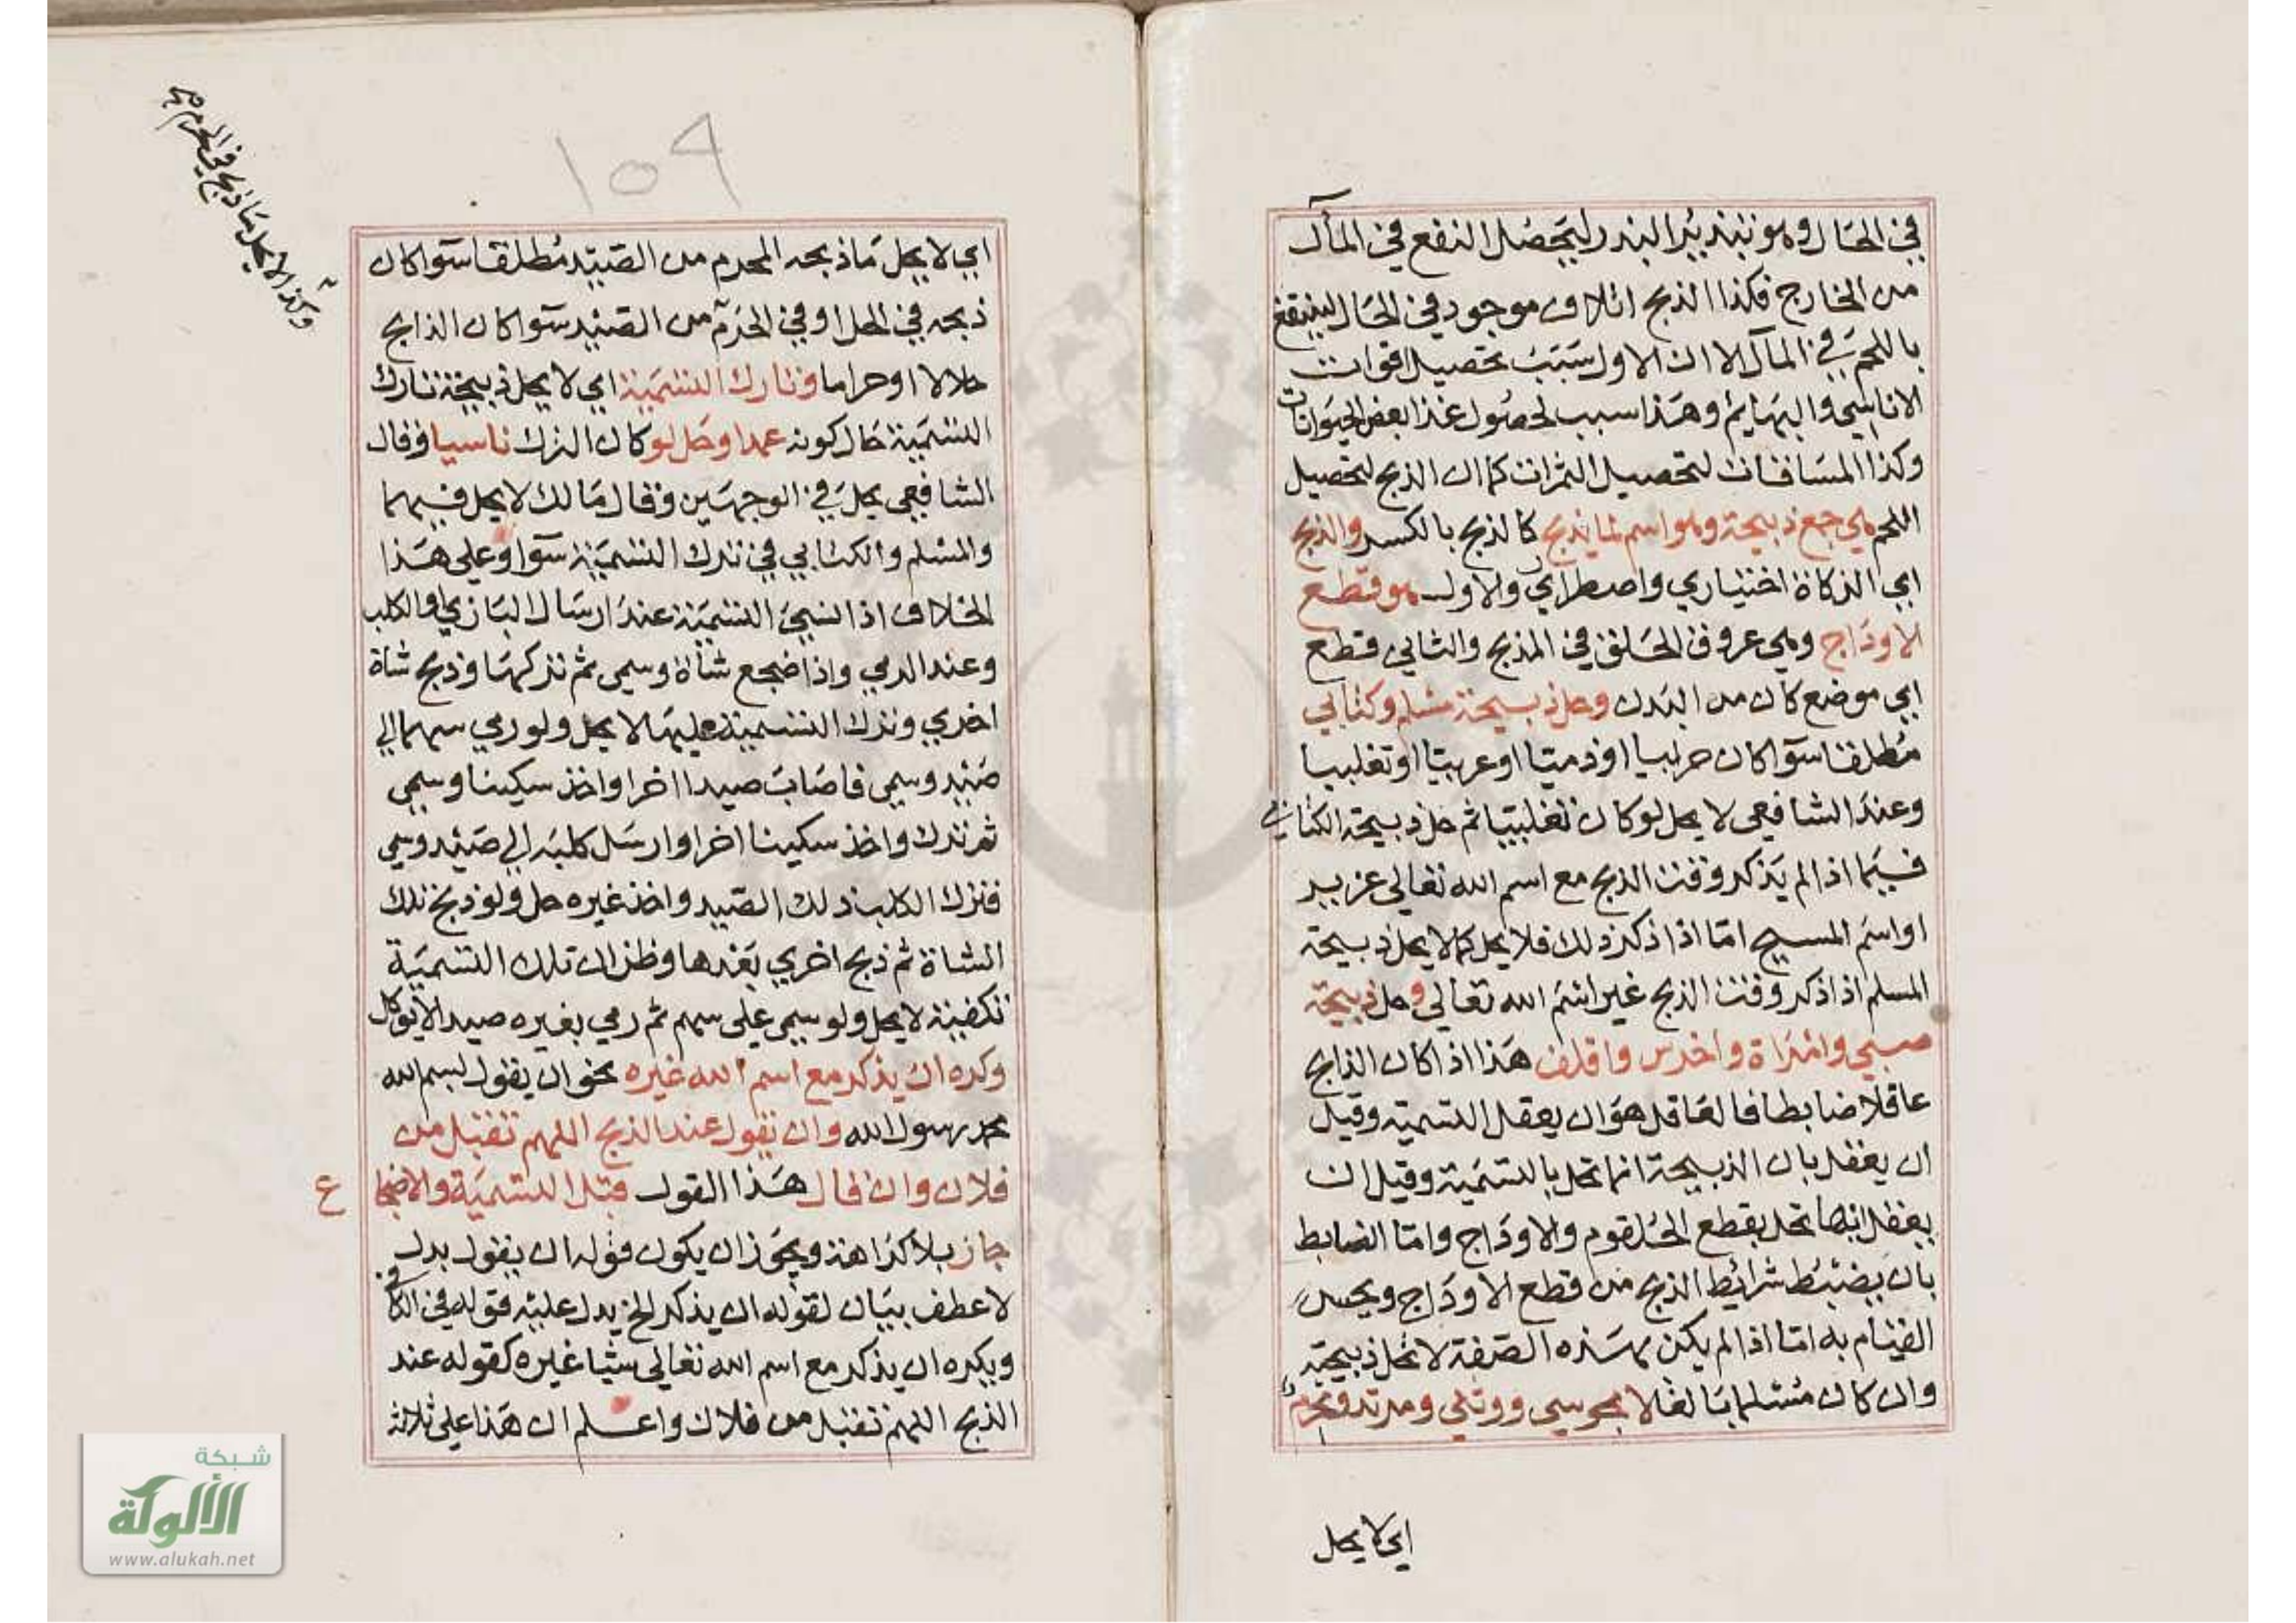 في الحال وهو تبذير البذر ليحصل النفع في المآل
من الخارج فكذا الذبح اتلاف موجود في الحال لينتفع
باللحم في المآل الا ان الاول سبب تحصيل اقوات
الاناسي والبهايم وهذا سبب لحصول غذا بعض الحيوانات
وكذا المساقات لتحصيل الثمرات كما ان الذبح لتحصيل
اللحم هي جمع ذبيحة وهو اسم لما يذبح كالذبح بالكسر والذبح
اي الذكاة اختياري واضطراري والاول هو قطع
الاوداج وهي عروق الحلق في المذبح والثاني قطع
اي موضع كان من البدن وحل ذبيحة مسلم وكتابي
مطلقا سوآ كان حربيا او ذميا او عربيا او تغلبيا
وعند الشافعي لا يحل لو كان تغلبيا ثم حل ذبيحة الكتابي
فيما اذا لم يذكر وقت الذبح مع اسم الله تعالى عزير
او اسم المسيح امّا اذا ذكر ذلك فلا يحل كما لا يحل ذبيحة
المسلم اذا ذكر وقت الذبح غير اسم الله تعالى وحل ذبيحة
صبي وامراة واخرس واقلف هذا اذا كان الذابح
عاقلا ضابطا فالعاقل هو ان يعقل التسمية وقيل
ان يعقل بان الذبيحة انما تحل بالتسمية وقيل ان
يعقل انها تحل بقطع الحلقوم والاوداج وامّا الضابط
بان يضبط شرائط الذبح من قطع الاوداج ويحسن
القيام به امّا اذا لم يكن بهذه الصفة لا تحل ذبيحته
وان كان مسلما بالغا لا مجوسي ووثني ومرتد ومحرم
اي لا يحل
١٥٩
اي لا يحل ما ذبحه المحرم من الصيد مطلقا سوآ كان
ذبحه في الحل او في الحرم من الصيد سوآ كان الذابح
حلالا او حراما وتارك التسمية اي لا يحل ذبيحة تارك
التسمية حال كونه عمدا وحل لو كان الترك ناسيا وقال
الشافعي يحل في الوجهين وقال مالك لا يحل فيهما
والمسلم والكتابي في ترك التسمية سوآ وعلى هذا
الخلاف اذا نسي التسمية عند ارسال البازي والكلب
وعند الرمي واذا ضجع شاة وسمى ثم تركها وذبح شاة
اخري وترك التسمية عليها لا يحل ولو رمي سهما الي
صيد وسمي فاصاب صيدا اخر او اخذ سكينا وسمي
ثم ترك واخذ سكينا اخر او ارسل كلبه الي صيد وسمي
فترك الكلب ذلك الصيد واخذ غيره حل ولو ذبح تلك
الشاة ثم ذبح اخري بعدها وظن ان تلك التسمية
تكفيه لا يحل ولو سمي على سهم ثم رمي بغيره صيدا لا يوكل
وكره ان يذكر مع اسم الله غيره نحو ان يقول بسم الله
محمد رسول الله وان يقول عند الذبح اللهم تقبل من
فلان وان قال هذا القول قبل التسمية والاضجا
ع
جاز بلا كراهة ويجوز ان يكون قوله ان يقول بدل
لا عطف بيان لقوله ان يذكر الخ يدل عليه قوله في الكافي
ويكره ان يذكر مع اسم الله تعالى شيا غيره كقوله عند
الذبح اللهم تقبل من فلان واعلم ان هذا على ثلاثة
وكذا لا يحل ما ذبح في الحرم
شبكة
الألوكة
www.alukah.net